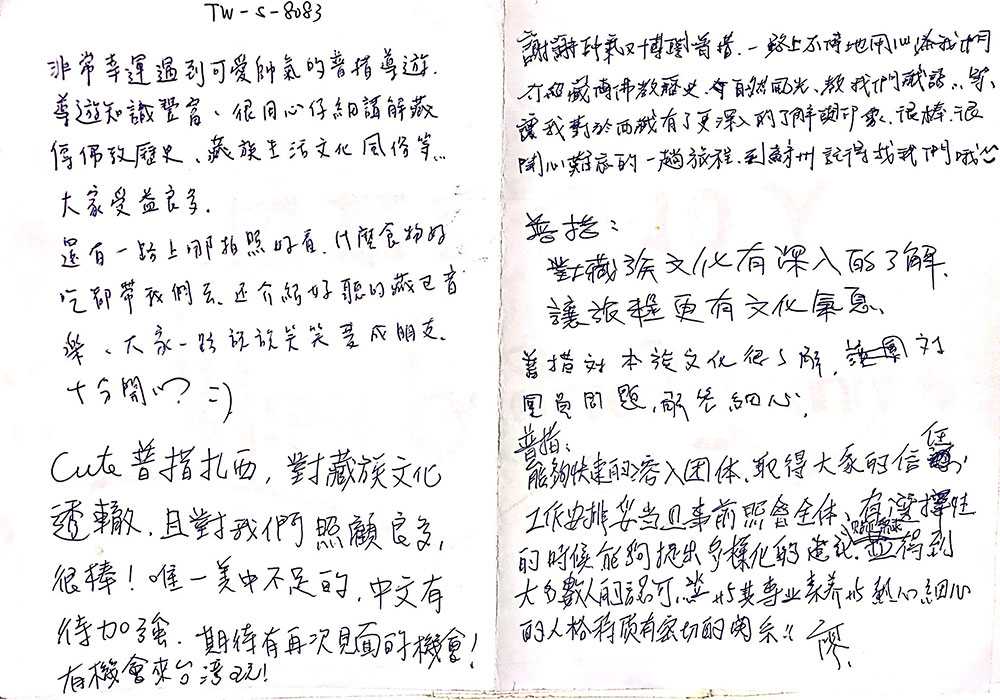 TW-S-8083
非常幸運遇到可愛帥氣的普措導遊.
導遊知識豐富、很用心仔細講解藏
傳佛教歷史、藏族生活文化風俗等..
大家受益良多.
還有一路上哪拍照好看.什麼食物好
吃都帶我們去.还介紹好聽的藏巴音
樂、大家一路說說笑笑變成朋友.
十分開心? =)
Cute 普措扎西, 對藏族文化
透轍. 且對我們照顧良多,
很棒! 唯一美中不足的, 中文有
待加強. 期待有再次見面的機會!
有機會來台灣玩!
謝謝帥氣又博聞普措.一路上不停地用心為我們
介紹藏傳佛教歷史、自然風光、教我們藏語..等、
讓我對於西藏有了更深入的了解與印象.很棒.很
開心難忘的一趟旅程.到蘇州記得找我們哦
普措:
對藏族文化有深入的了解.
讓旅程更有文化氣息.
普措对本族文化很了解, 对
團員問題,解答細心.
普措:
能夠快速的溶入团体.取得大家的信任,
工作安排妥当且事前照會全体、有選擇性
的時候能夠提出多樣化的建議.並得到
大多數人的認可,其專业素养与熱心細心
的人格特质有密切的関系..廖.